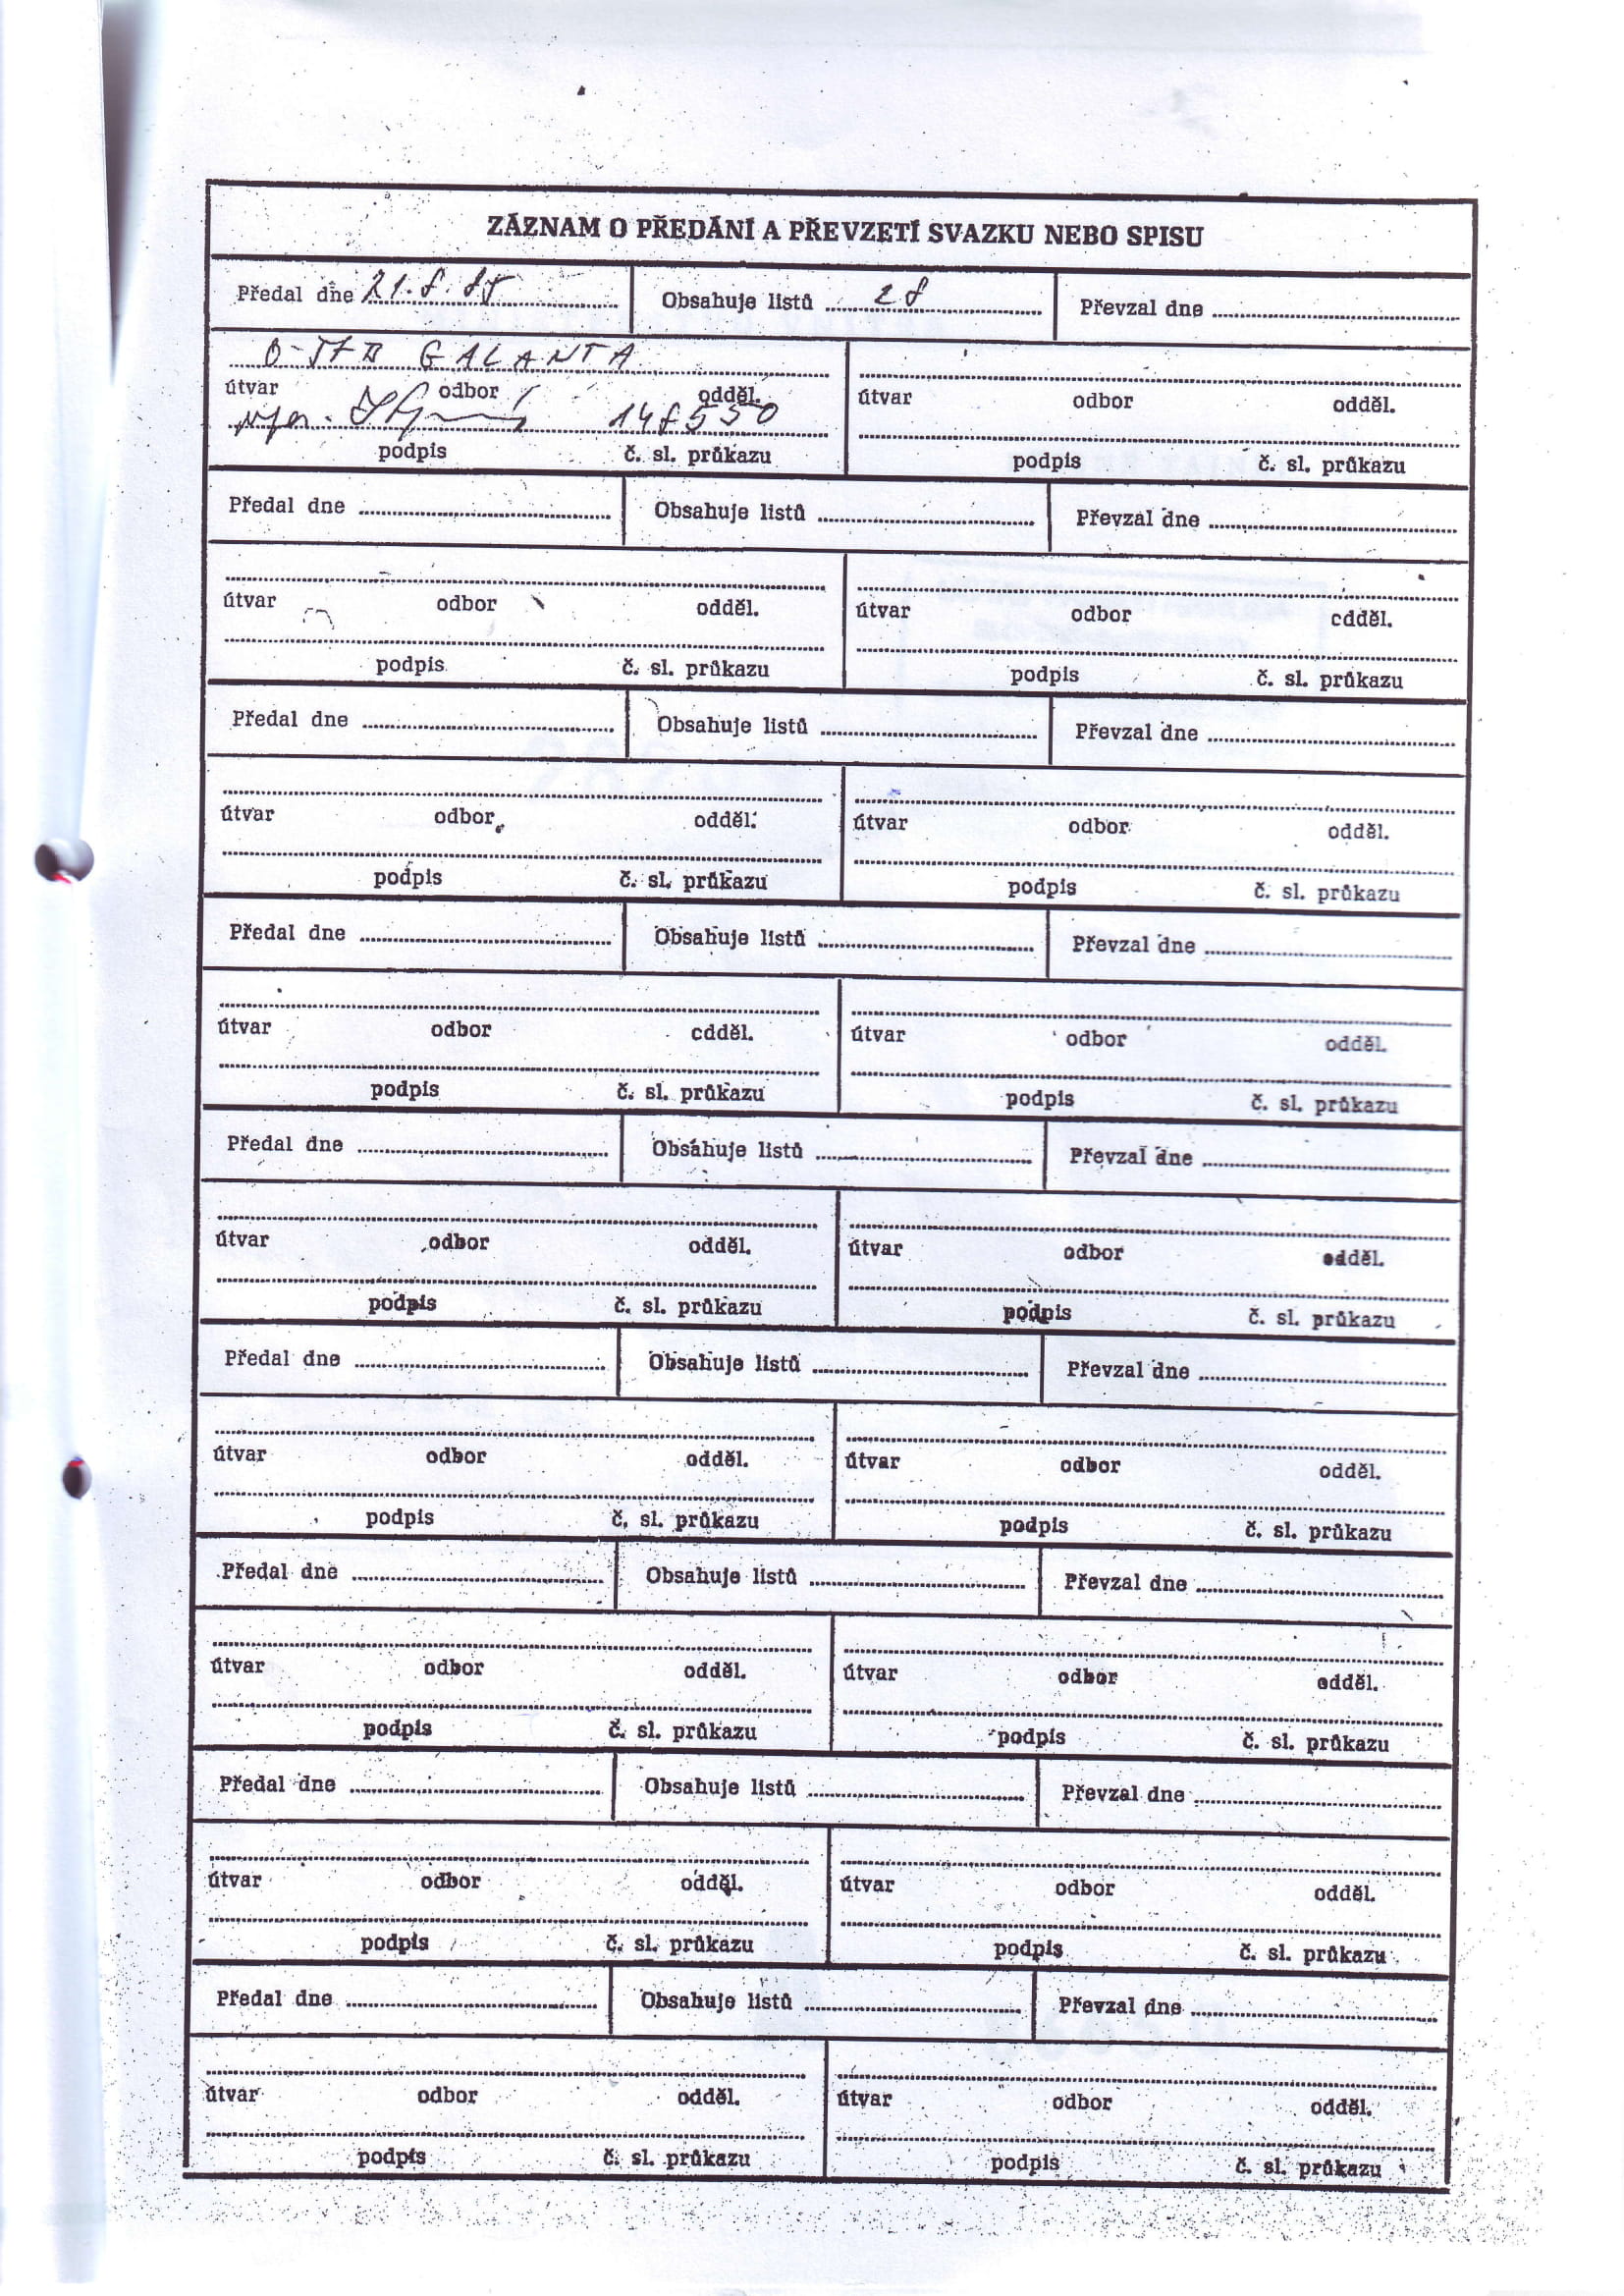 ZÁZNAM O PŘEDÁNÍ A PŘEVZETÍ SVAZKU NEBO SPISU
Předal dne 21. 8. Obsahuje listů 28 Převzal dne
GALANTA
útvar odbor odděl. útvar odbor odděl.
148550
podpis č. sl. průkazu podpis č. sl. průkazu
Předal dne Obsahuje listů Převzal dne
útvar odbor odděl. útvar odbor cdděl.
podpis č. sl. průkazu podpis č. sl. průkazu
Předal dne Obsahuje listů Převzal dne
útvar odbor odděl. útvar odbor odděl.
podpis č. sl. průkazu podpis č. sl. průkazu
Předal dne Obsahuje listů Převzal dne
útvar odbor cdděl. útvar odbor odděl.
podpis č. sl. průkazu podpis č. sl. průkazu
Předal dne Obsahuje listů Převzal dne
útvar odbor odděl. útvar odbor odděl.
podpis č. sl. průkazu podpis č. sl. průkazu
Předal dne Obsahuje listů Převzal dne
útvar odbor odděl. útvar odbor odděl.
podpis č. sl. průkazu podpis č. sl. průkazu
Předal dne Obsahuje listů Převzal dne
útvar odbor odděl. útvar odbor odděl.
podpis č. sl. průkazu podpis č. sl. průkazu
Předal dne Obsahuje listů Převzal dne
útvar odbor odděl. útvar odbor odděl.
podpis č. sl. průkazu podpis č. sl. průkazu
Předal dne Obsahuje listů Převzal dne
útvar odbor odděl. útvar odbor odděl.
podpis č. sl. průkazu podpis č. sl. průkazu